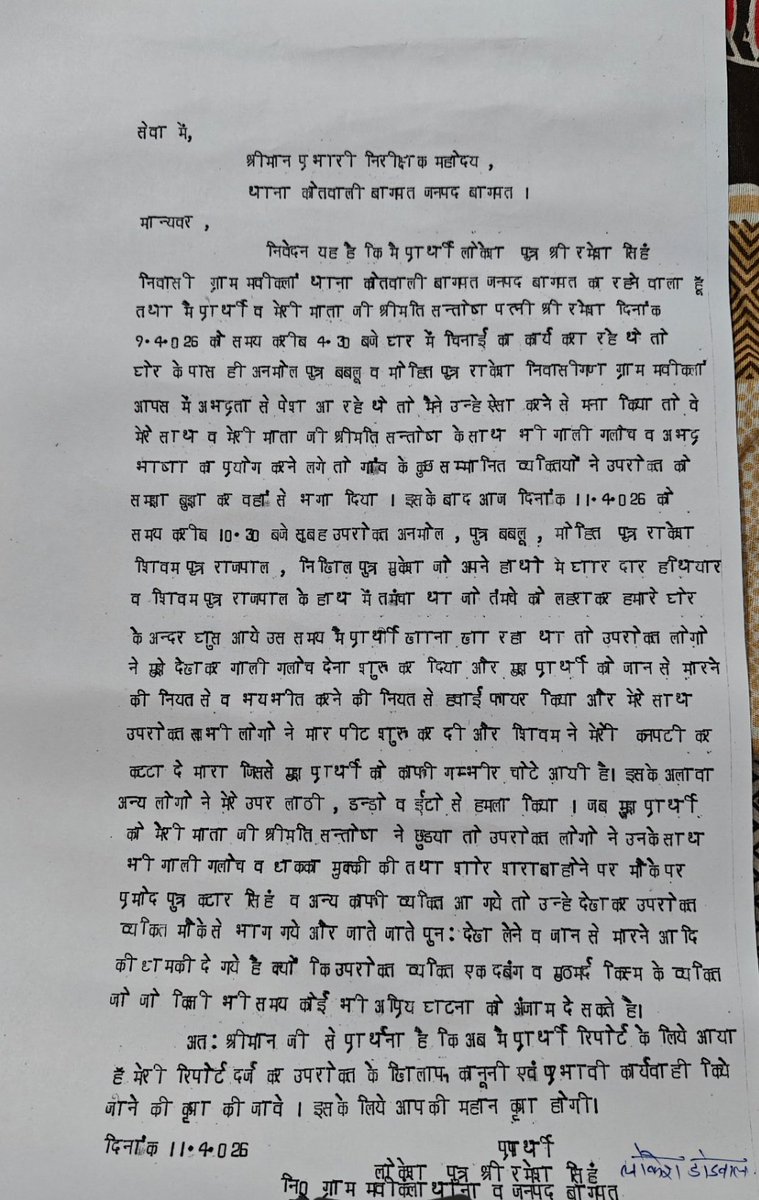 सेवा में,
श्रीमान प्रभारी निरीक्षक महोदय ,
थाना कोतवाली बागपत जनपद बागपत ।
मान्यवर ,
निवेदन यह है कि मै प्रार्थी लोकेश पुत्र श्री रमेश सिहं
निवासी ग्राम मवीकलां थाना कोतवाली बागपत जनपद बागपत का रहने वाला हूँ
तथा मै प्रार्थी व मेरी माता जी श्रीमति सन्तोष पत्नी श्री रमेश दिनांक
9·4·026 को समय करीब 4·30 बजे घर में चिनाई का कार्य करा रहे थे तो
घेर के पास ही अनमोल पुत्र बबलू व मोहित पुत्र राकेश निवासीगण ग्राम मवीकलां
आपस में अभद्रता से पेश आ रहे थे तो मैने उन्हे ऐसा करने से मना किया तो वे
मेरे साथ व मेरी माता जी श्रीमति सन्तोष के साथ भी गाली गलोच व अभद्र
भाषा का प्रयोग करने लगे तो गांव के कुछ सम्मानित व्यक्तियों ने उपरोक्त को
समझा बुझा कर वहां से भगा दिया । इसके बाद आज दिनांक 11·4·026 को
समय करीब 10·30 बजे सुबह उपरोक्त अनमोल , पुत्र बबलू , मोहित पुत्र राकेश
शिवम पुत्र राजपाल , निखिल पुत्र मुकेश जो अपने हाथो मे धार दार हथियार
व शिवम पुत्र राजपाल के हाथ में तमंचा था जो तंमचे को लहराकर हमारे घेर
के अन्दर घुस आये उस समय मै प्रार्थी खाना खा रहा था तो उपरोक्त लोगो
ने मुझे देखकर गाली गलोच देना शुरू कर दिया और मुझ प्रार्थी को जान से मारने
की नियत से व भयभीत करने की नियत से हवाई फायर किया और मेरे साथ
उपरोक्त सभी लोगो ने मार पीट शुरू कर दी और शिवम ने मेरी कनपटी कर
कटटा दे मारा जिससे मुझ प्रार्थी को काफी गम्भीर चोटे आयी है। इसके अलावा
अन्य लोगो ने मेरे उपर लाठी , डन्डो व ईटो से हमला किया । जब मुझ प्रार्थी
को मेरी माता जी श्रीमति सन्तोष ने छुडया तो उपरोक्त लोगो ने उनके साथ
भी गाली गलोच व धक्का मुक्की की तथा शोर शराबा होने पर मौके पर
प्रमोद पुत्र कटार सिहं व अन्य काफी व्यक्ति आ गये तो उन्हे देखकर उपरोक्त
व्यक्ति मौके से भाग गये और जाते जाते पुन: देख लेने व जान से मारने आदि
की धामकी दे गये है क्यों कि उपरोक्त व्यक्ति एक दबंग व मुठमर्द किस्म के व्यक्ति
जो जो किसी भी समय कोई भी अप्रिय घटना को अंजाम दे सकते है।
अत: श्रीमान जी से प्रार्थना है कि अब मै प्रार्थी रिपोर्ट के लिये आया
हूँ मेरी रिपोर्ट दर्ज कर उपरोक्त के खिलाफ कानूनी एवं प्रभावी कार्यवाही किये
जाने की कृपा की जावे । इसके लिये आपकी महान कृपा होगी।
दिनांक 11·4·026 प्रार्थी
लोकेश पुत्र श्री रमेश सिहं लोकेश डोडवाल
नि0 ग्राम मवीकला थाना व जनपद बागपत